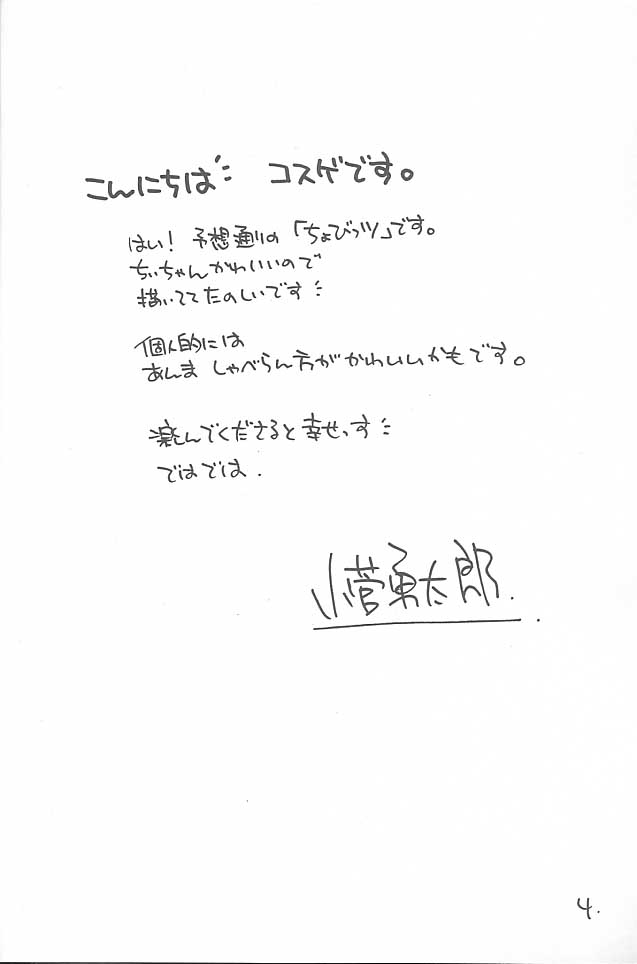 こんにちは゛ コスゲです。
はい! 予想通りの「ちょびっツ」です。
ちぃちゃんかわいいので
描いててたのしいです
個人的には
あんま しゃべらん方がかわいいかもです。
楽しんでくださると幸せっす
ではでは.
小菅勇太郎.
4.